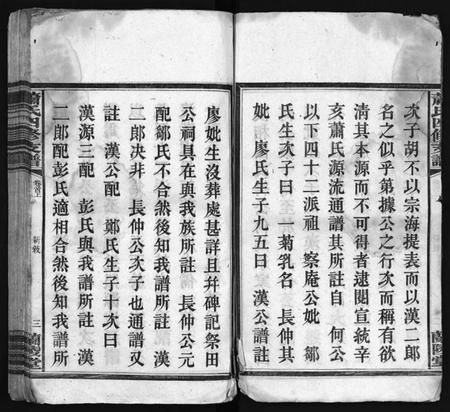 蕭氏四修支譜
次子胡不以宗海提表而以漢二郎
名之似乎弟據公之行次而稱有欲
清其本源而不可得者逮閱宣統辛
亥蕭氏源流通譜其所註自 何公
以下四十二派祖 察庵公妣 鄒
氏生次子曰 一菊乳名 長仲其
妣 廖氏生子九五曰 漢公譜註
蘭陵堂
廖妣生沒葬處甚詳且幷碑記祭田
公祠具在與我族所註 長仲公元
配鄒氏不合然後知我譜所註 漢
二郎決非 長仲公次子也通譜又
註 漢公配 鄭氏生子十次曰
漢源三配 彭氏與我譜所註 漢
二郎配彭氏適相合然後知我譜所
蕭氏四修支譜
卷首上
新敘
三
蘭陵堂